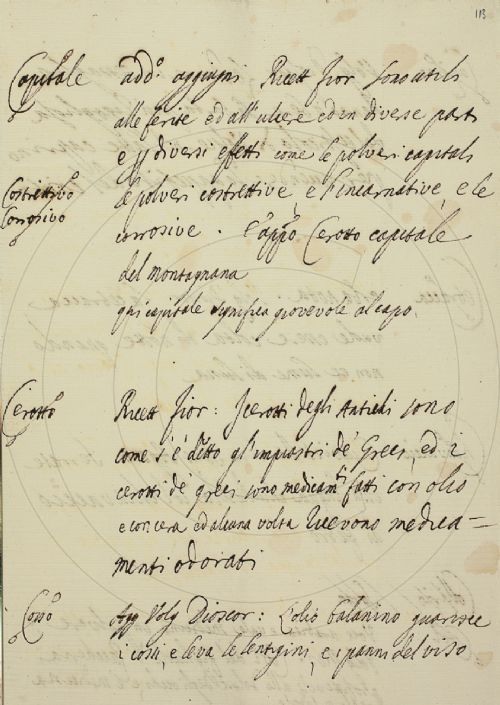 113
Capitale add.º aggiugni Ricett fior sono utili
alle ferite ed all'ulcere ed in diverse parti
e p diversi effetti come le polveri capitali
Costrettivo le polveri costrettive, e l'incarnative, e le
Corrosivo corrosive. E app.º Cerotto capitale
del montagnana
qui capitale significa giovevole al capo.
Cerotto Ricett fior: I cerotti degli Antichi sono
come s'è detto gl'impiastri de' Greci, ed i
cerotti de' greci sono medicam.ti fatti con olio
e con cera ed alcuna volta ricevono medica=
menti odorati
Cosso App Volg Dioscor: L'olio balanino guarisce
i cossi, e leva le lentigini, e i panni del viso